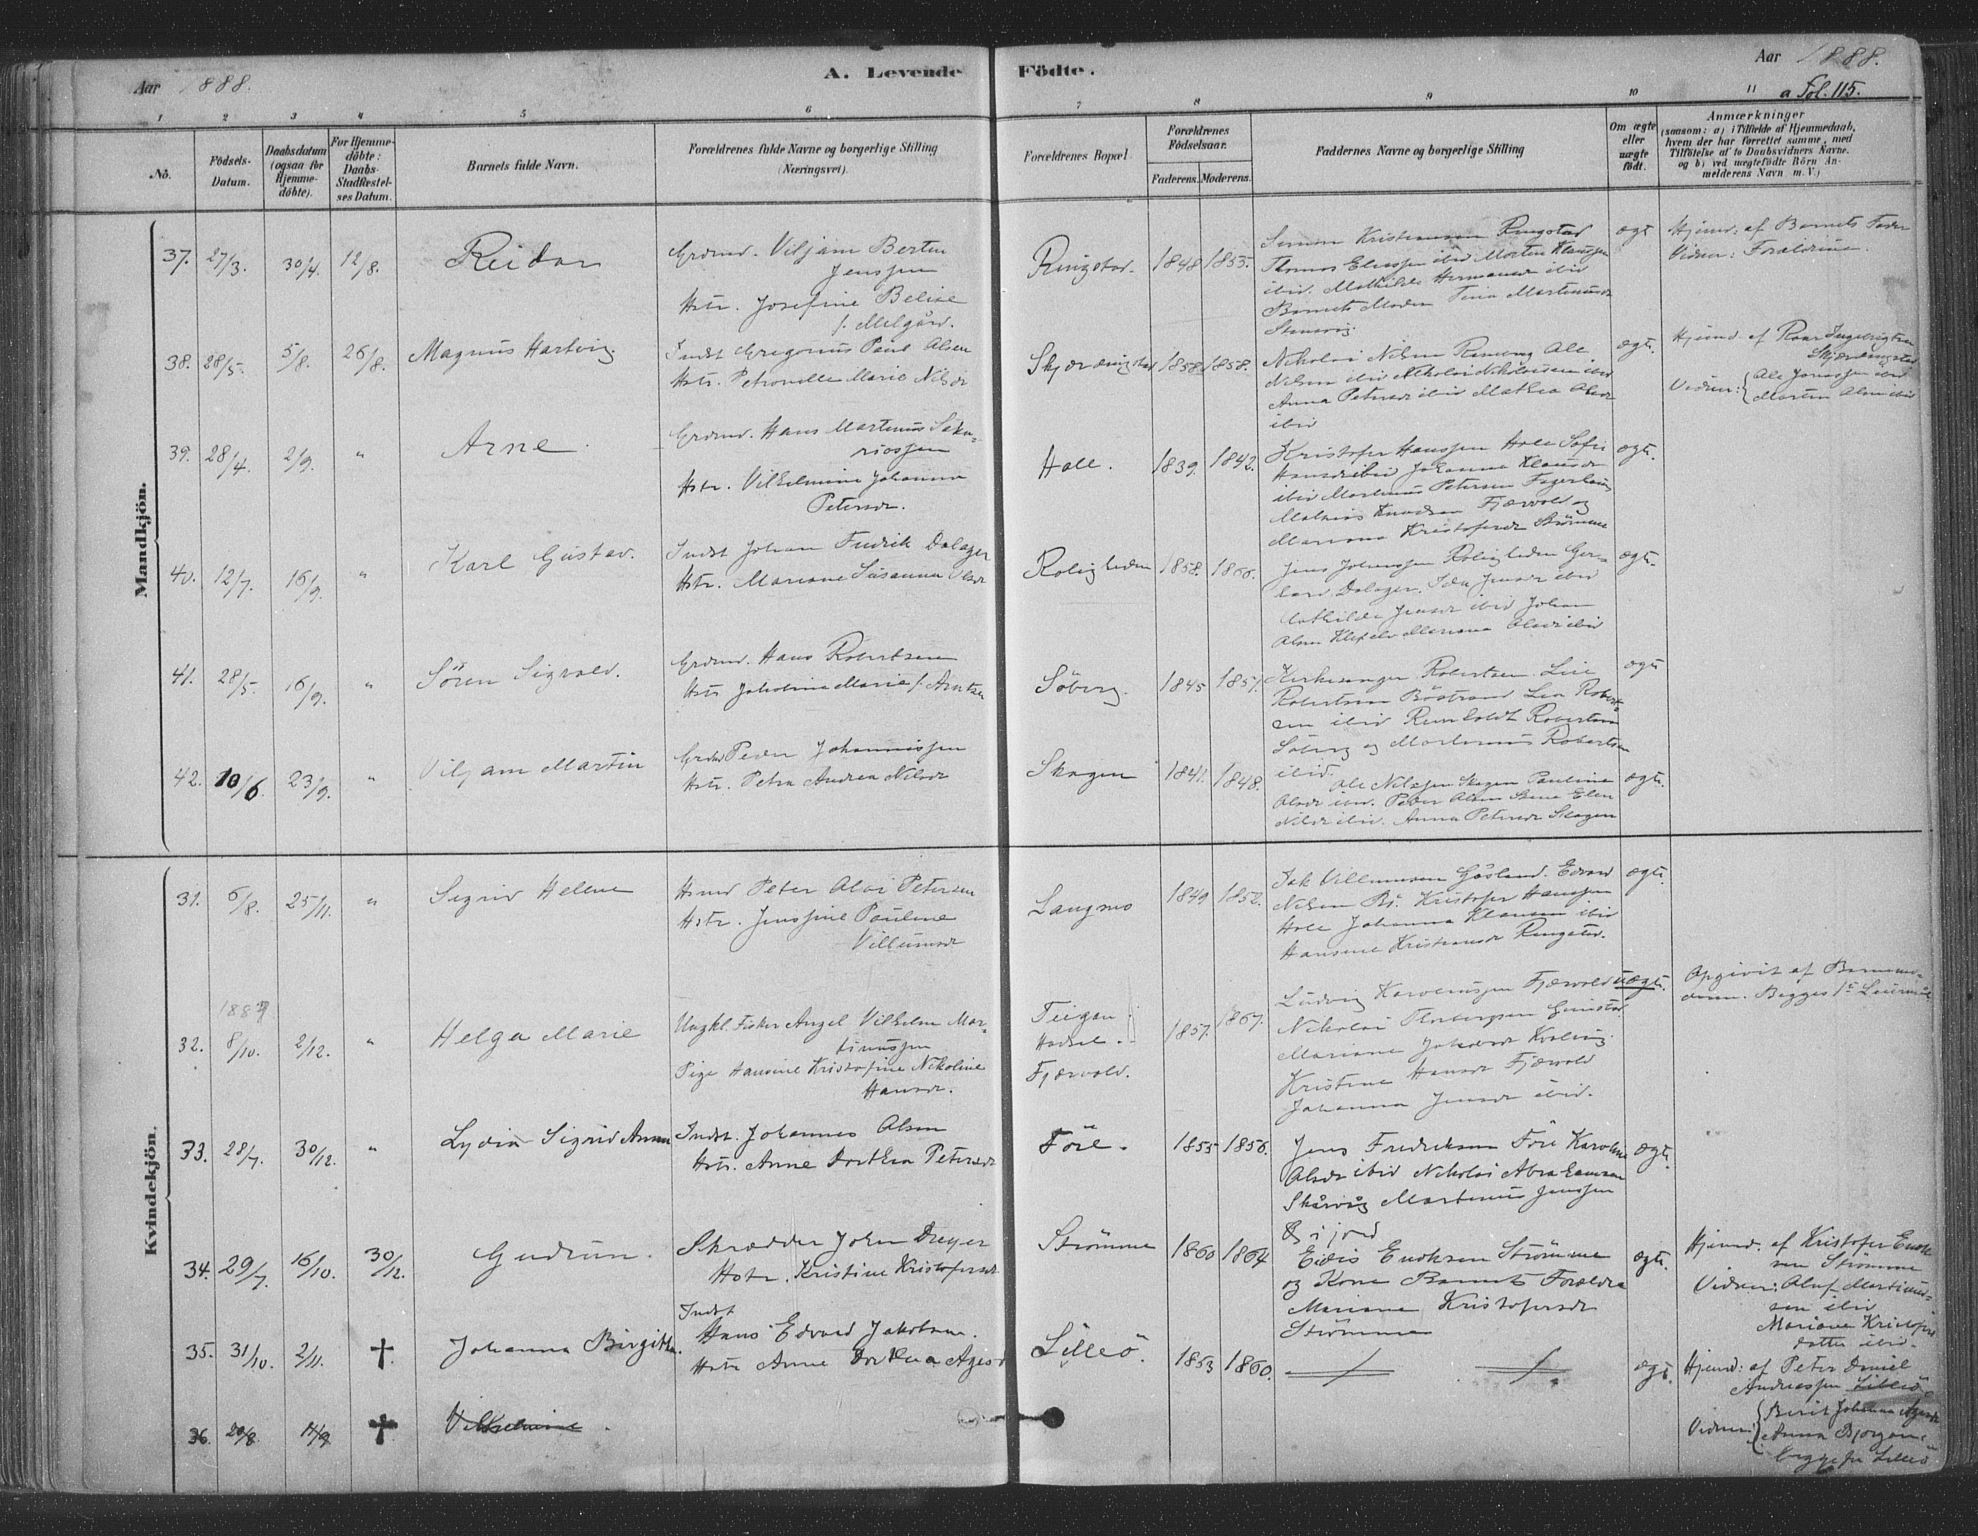 Aar 1888.
A. Levende
Födte.
Aar 1888.
a Fol. 115.
1 2 3 4 5 6 7 8 9 10 11
No.
Födsels-Datum.
Daabsdatum (ogsaa for Hjemmedöbte).
For Hjemmedöbte: Daabs-Stadfæstelses Datum.
Barnets fulde Navn.
Forældrenes fulde Navne og borgerlige Stilling
(Næringsvei).
Forældrenes Bopæl.
Forældrenes Födselsaar.
Faderens. Moderens.
Faddernes Navne og borgerlige Stilling
Om ægte eller uægte födt.
Anmærkninger
(saasom: a) i Tilfælde af Hjemmedaab,
hvem der har forrettet samme, med
Tilföielse af to Daabsvidners Navne.
og b) ved uægtefödte Börn Anmelderens Navn m. V.)
Mandkjön.
37. 27/3. 30/4. 12/8. Reidar
Grdmd. Viljam Bertin
Jenssen
Hstr. Josefine Belise
f. Melgård.
Ringstad. 1848 1855.
Simon Kristiansen Ringstad
Thomas Eliassen ibid Morten Klausen
ibid. Mathilde Hermansdr ibid
Barnets Moder Tina Martinusdr
ægt
Hjemd. af Barnets Fader
Vidner: Forældrene.
38. 28/5. 5/8. 26/8. Magnus Hartvig
Indst Gregorius Paul Olsen
Hstr. Petronelle Marie Nilsdr
Skjærdingstad 1858 1858.
Nikolai Nilsen Ole
Nilsen ibid Nikolai Nikolaisen ibid
Anna Petersdr ibid Mathea Olsdr
ibid
ægte.
Hjemd. af Roar Ingebrigtsen
Skjærdingstad
Vidner: Ole Jonassen ibid
Martin Olsen ibid
39. 28/4. 2/9. " Arne.
Grdmd. Hans Martinus Sakariassen
Hstr. Vilhelmine Johanna
Petersdr.
Hole. 1839. 1842.
Kristofer Hanssen Hole Sofie
Hansdr ibid Johanna Klausdr
ibid Martinus Petersen
Mathias Knudsen Fjærvold og
Mariana Kristofersdr Strömme
ægte.
40. 12/7. 16/9. " Karl Gustav.
Indst Johan Fredrik Dolager
Hstr. Mariane Susanna Olsdr
Roligheden 1858.
Jens Johanssen Roligheden
Dalager. Ida Jensdr ibid
Mathilde Jensdr ibid Johan
Olsen Mariana Olsdr ibid
ægte.
41. 28/5. 16/9. " Sören Sigvald.
Grdmd. Hans Robertsen
Hstr Jakobina Marie f. Arntsen
Söberg. 1845 1857.
Kirkesanger Robertsen. Lui
Robertsen Böstrand Lea Robertsen ibid Reinholdt Robertsen
Söberg og Martinus Robertsen
ibid.
ægte
42. 10/6. 23/9. " Viljam Martin
Grdmd Peder Johannessen
Hstr. Petra Andrea Nilsdr
Skagen 1841. 1848.
Ole Nilssen Skagen Pauline
Olsdr ibid. Peter Olsen Elen
Nilsdr ibid. Anna Petersdr Skagen
ægte.
Kvindekjön.
31. 6/8. 25/11. " Sigrid Helene
Hsmd Peter Olai Petersen
Hstr. Jenssine Pauline
Villumsdr
Langmo 1849 1852.
Isak Villumsen Gåsland. Edvard
Nilsen Bö. Kristofer Hanssen
Hole Johanna Klausen ibid
Hansine Kristiansdr Ringstad.
ægte.
32. 1887 8/10. 2/12. " Helga Marie
Ungkl. Fisker Angel Vilhelm Martinussen
Pige Hansine Kristofine Nikoline
Hansdr.
Teigan
Hadsel.
Fjærvold.
1857. 1867.
Ludvig Fjærvold
Nikolai Thorbergsen
Mariane Jakobsdr
Kristine Hansdr Fjærvold
Johanna Jensdr ibid.
uægte.
Opgivet af Barnemoderen. Begges 1ste Leiermål
33. 28/7. 30/12. " Lydia Sigrid Anna
Indst. Johannes Olsen
Hstr. Anne Dorthea Petersdr
Före. 1855 1856.
Jens Fredriksen Före Karoline
Olsdr ibid Nikolai Abrahamsen
Skårvåg Martinus Jenssen
ægte.
34. 29/7. 16/10. 30/12. Gudrun.
Skrædder Johan Dreyer
Hstr. Kristine Kristofersdr
Strömme 1860 1864
Eidis Enoksen Strömme
og Kone Barnets Forældre
Mariane Kristofersdr
Strömme
ægte.
Hjemd. af Kristofer Enoksen Strömme
Vidner: Oluf Martinussen ibid
Mariane Kristofersdatter ibid.
35. 31/10. 2/11. † Johanna Birgitte.
Indst
Hans Edvard Jakobsen.
Hstr Anne Dorthea Agesdr
Lilleö. 1853 1860.
ægt.
Hjemd: af Peter Daniel
Andreassen Lilleö
Vidner: Berit Johanna Agesdr
Anna
begge fra Lilleö
36. 20/8. 11/9 † Vilhelmine.